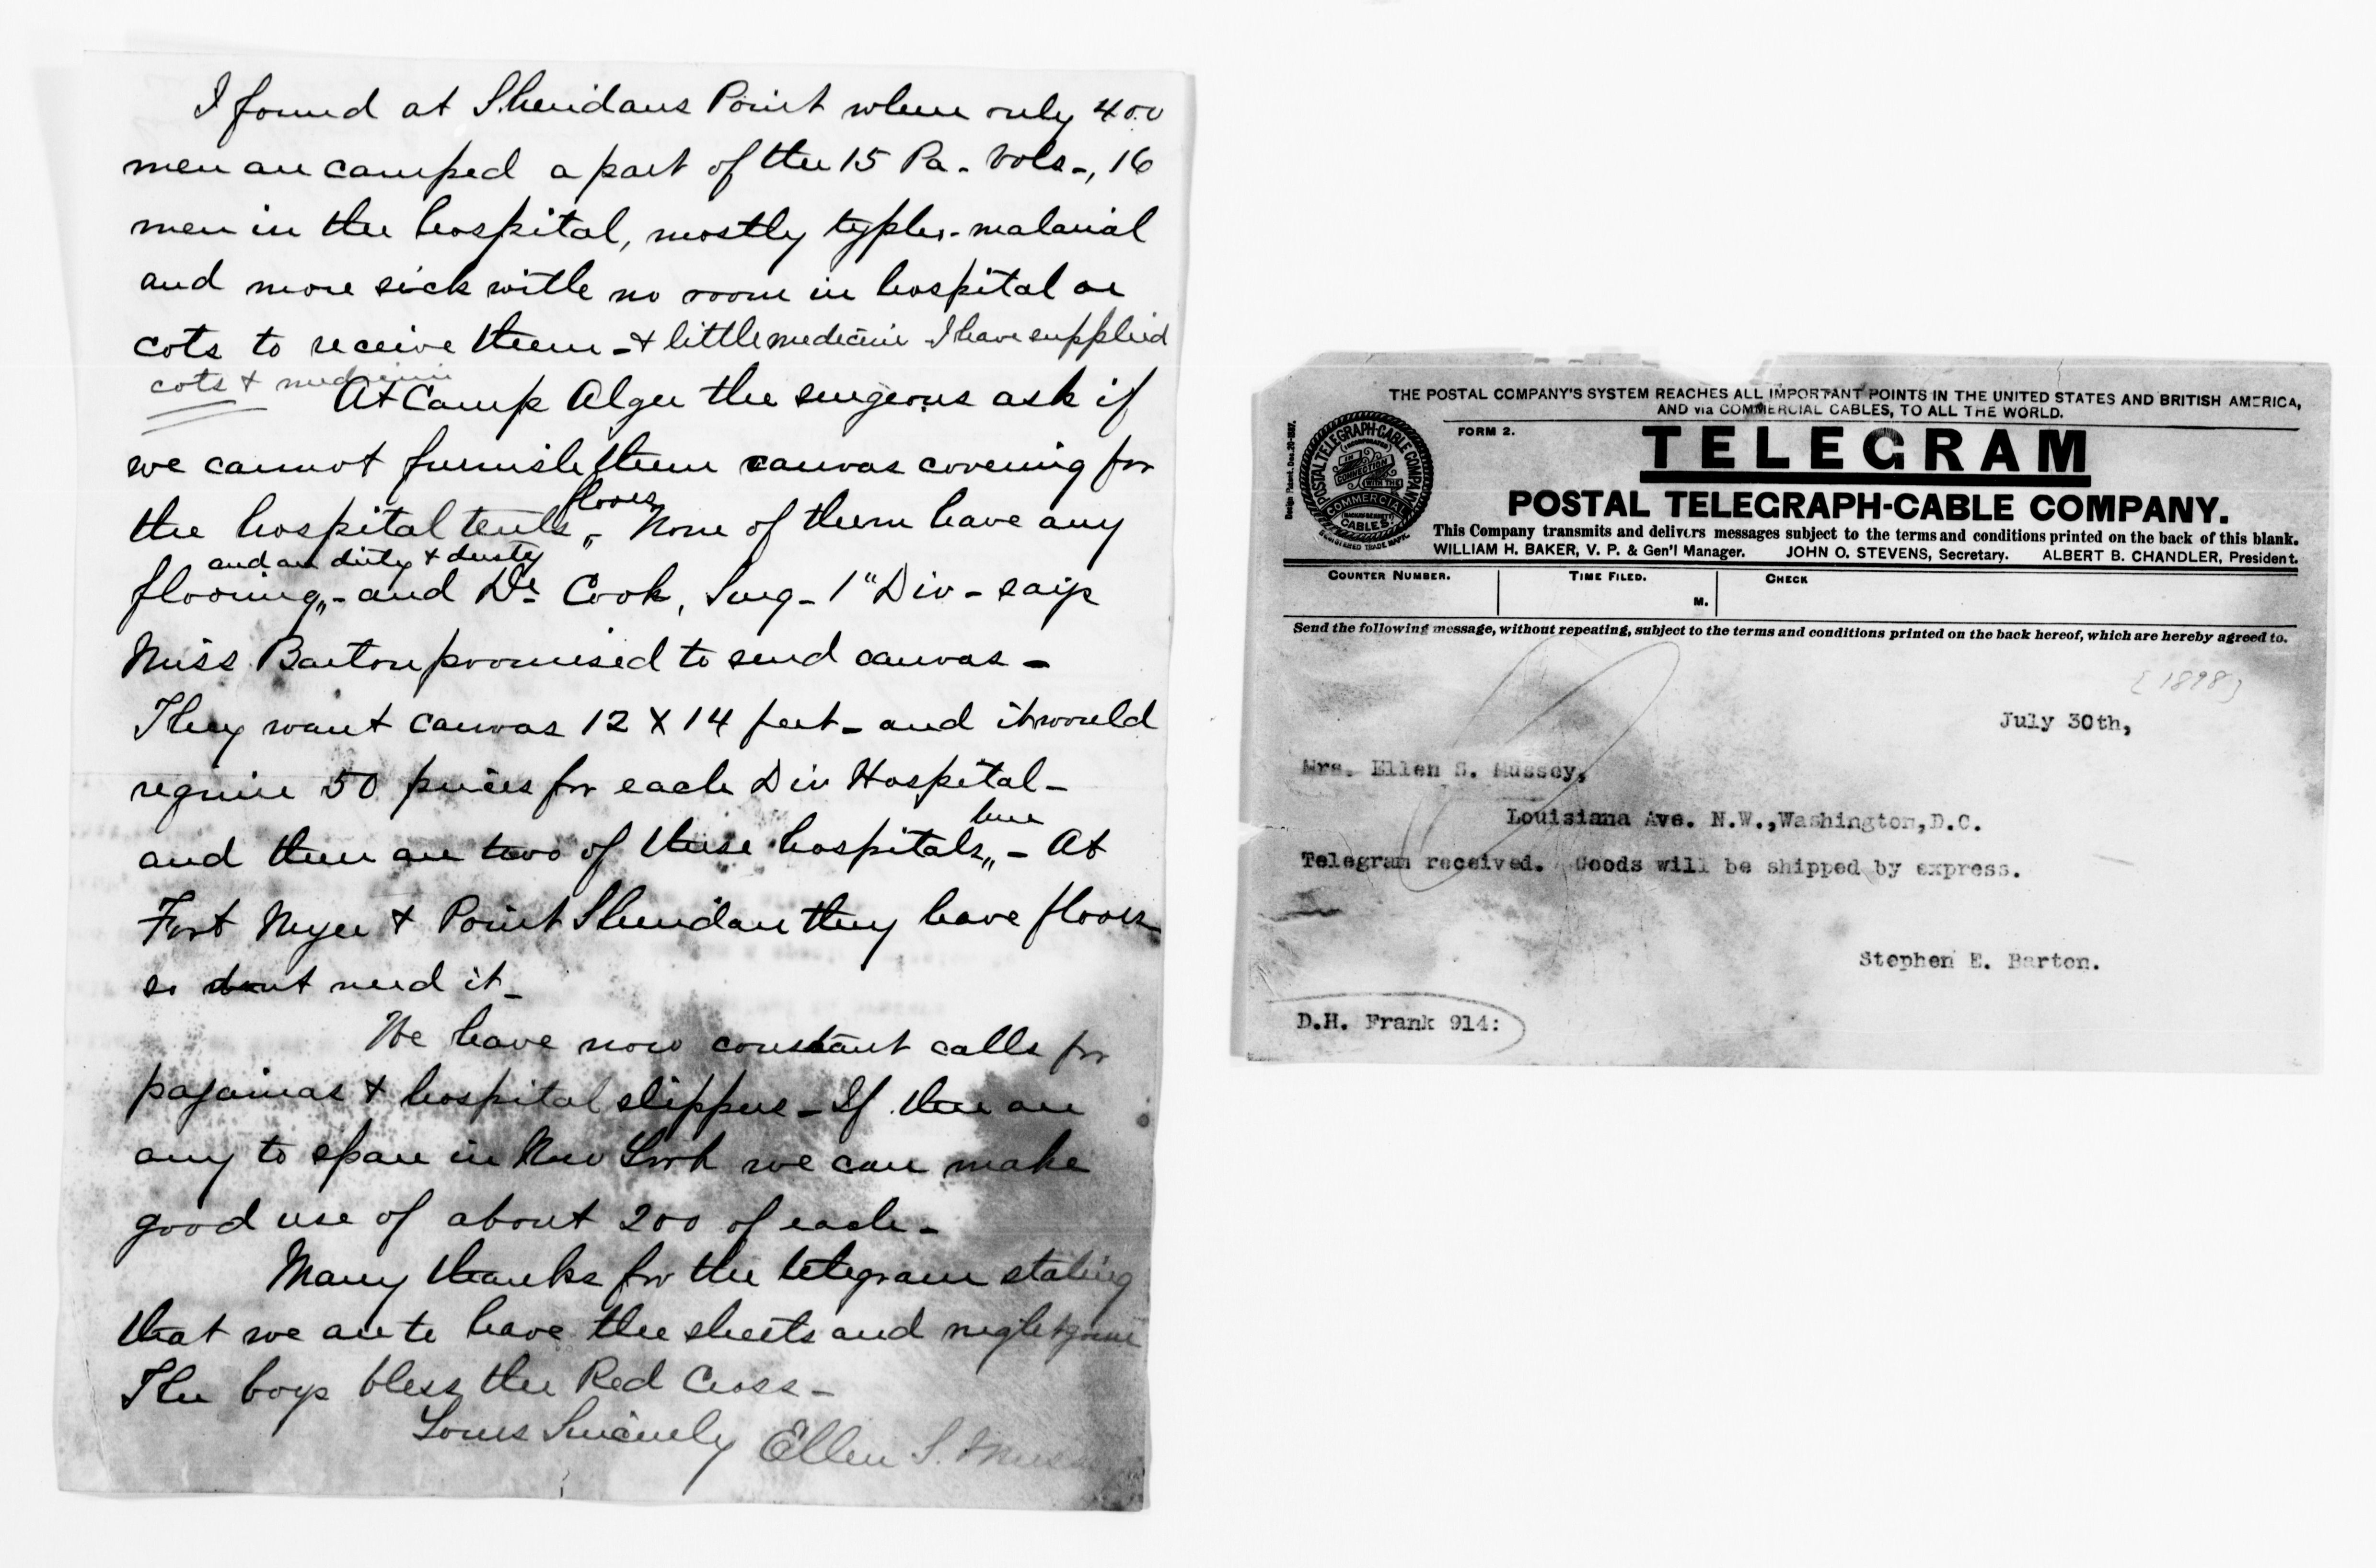 I found at Sheridans Point where only 400
men are camped a part of the 15 Pa. Vols-, 16
men in the hospital, mostly typho-malarial
and more sick with no room in hospital or
cots to receive them - & little medicine I have supplied
cots & medicine
At Camp Alger the surgeons ask if
we cannot furnish them canvas covering for
floors
the hospital tents, None of them have any
and are dirty & dusty
flooring, - and Dr. Cook, Surg - 1" Div - says
Miss Barton promised to send canvas -
They want canvas 12 X 14 feet - and it would
require 50 pieces for each Div Hospital -
here
and there are two of these hospitals, - At
Fort Myer & Point Sheridan they have floors
so dont need it -
We have now constant calls for
pajamas & hospital slippers - If there are
any to spare in New York we can make
good use of about 200 of each -
Many thanks for the telegram stating
that we are to have the sheets and
The boys bless the Red Cross -
Yours Sincerely Ellen S.
THE POSTAL COMPANY'S SYSTEM REACHES ALL IMPORTANT POINTS IN THE UNITED STATES AND BRITISH AMERICA,
AND via COMMERCIAL CABLES, TO ALL THE WORLD.
Design Patent, Dec. 20-1887.
POSTAL TELEGRAPH-CABLE COMPANY
(INCORPORATED)
IN
CONNECTION
WITH THE
COMMERCIAL
MACKAY-BENNETT
CABLES.
REGISTERED TRADE MARK.
FORM 2.
TELEGRAM
POSTAL TELEGRAPH-CABLE COMPANY.
This Company transmits and delivers messages subject to the terms and conditions printed on the back of this blank.
WILLIAM H. BAKER, V. P. & Gen'l Manager. JOHN O. STEVENS, Secretary. ALBERT B. CHANDLER, President.
COUNTER NUMBER. TIME FILED. CHECK
M.
Send the following message, without repeating, subject to the terms and conditions printed on the back hereof, which are hereby agreed to.
[1898]
July 30th,
Mrs. Ellen S. Mussey,
Louisiana Ave. N.W.,Washington,D.C.
Telegram received. Goods will be shipped by express.
Stephen E. Barton.
D.H. Frank 914: